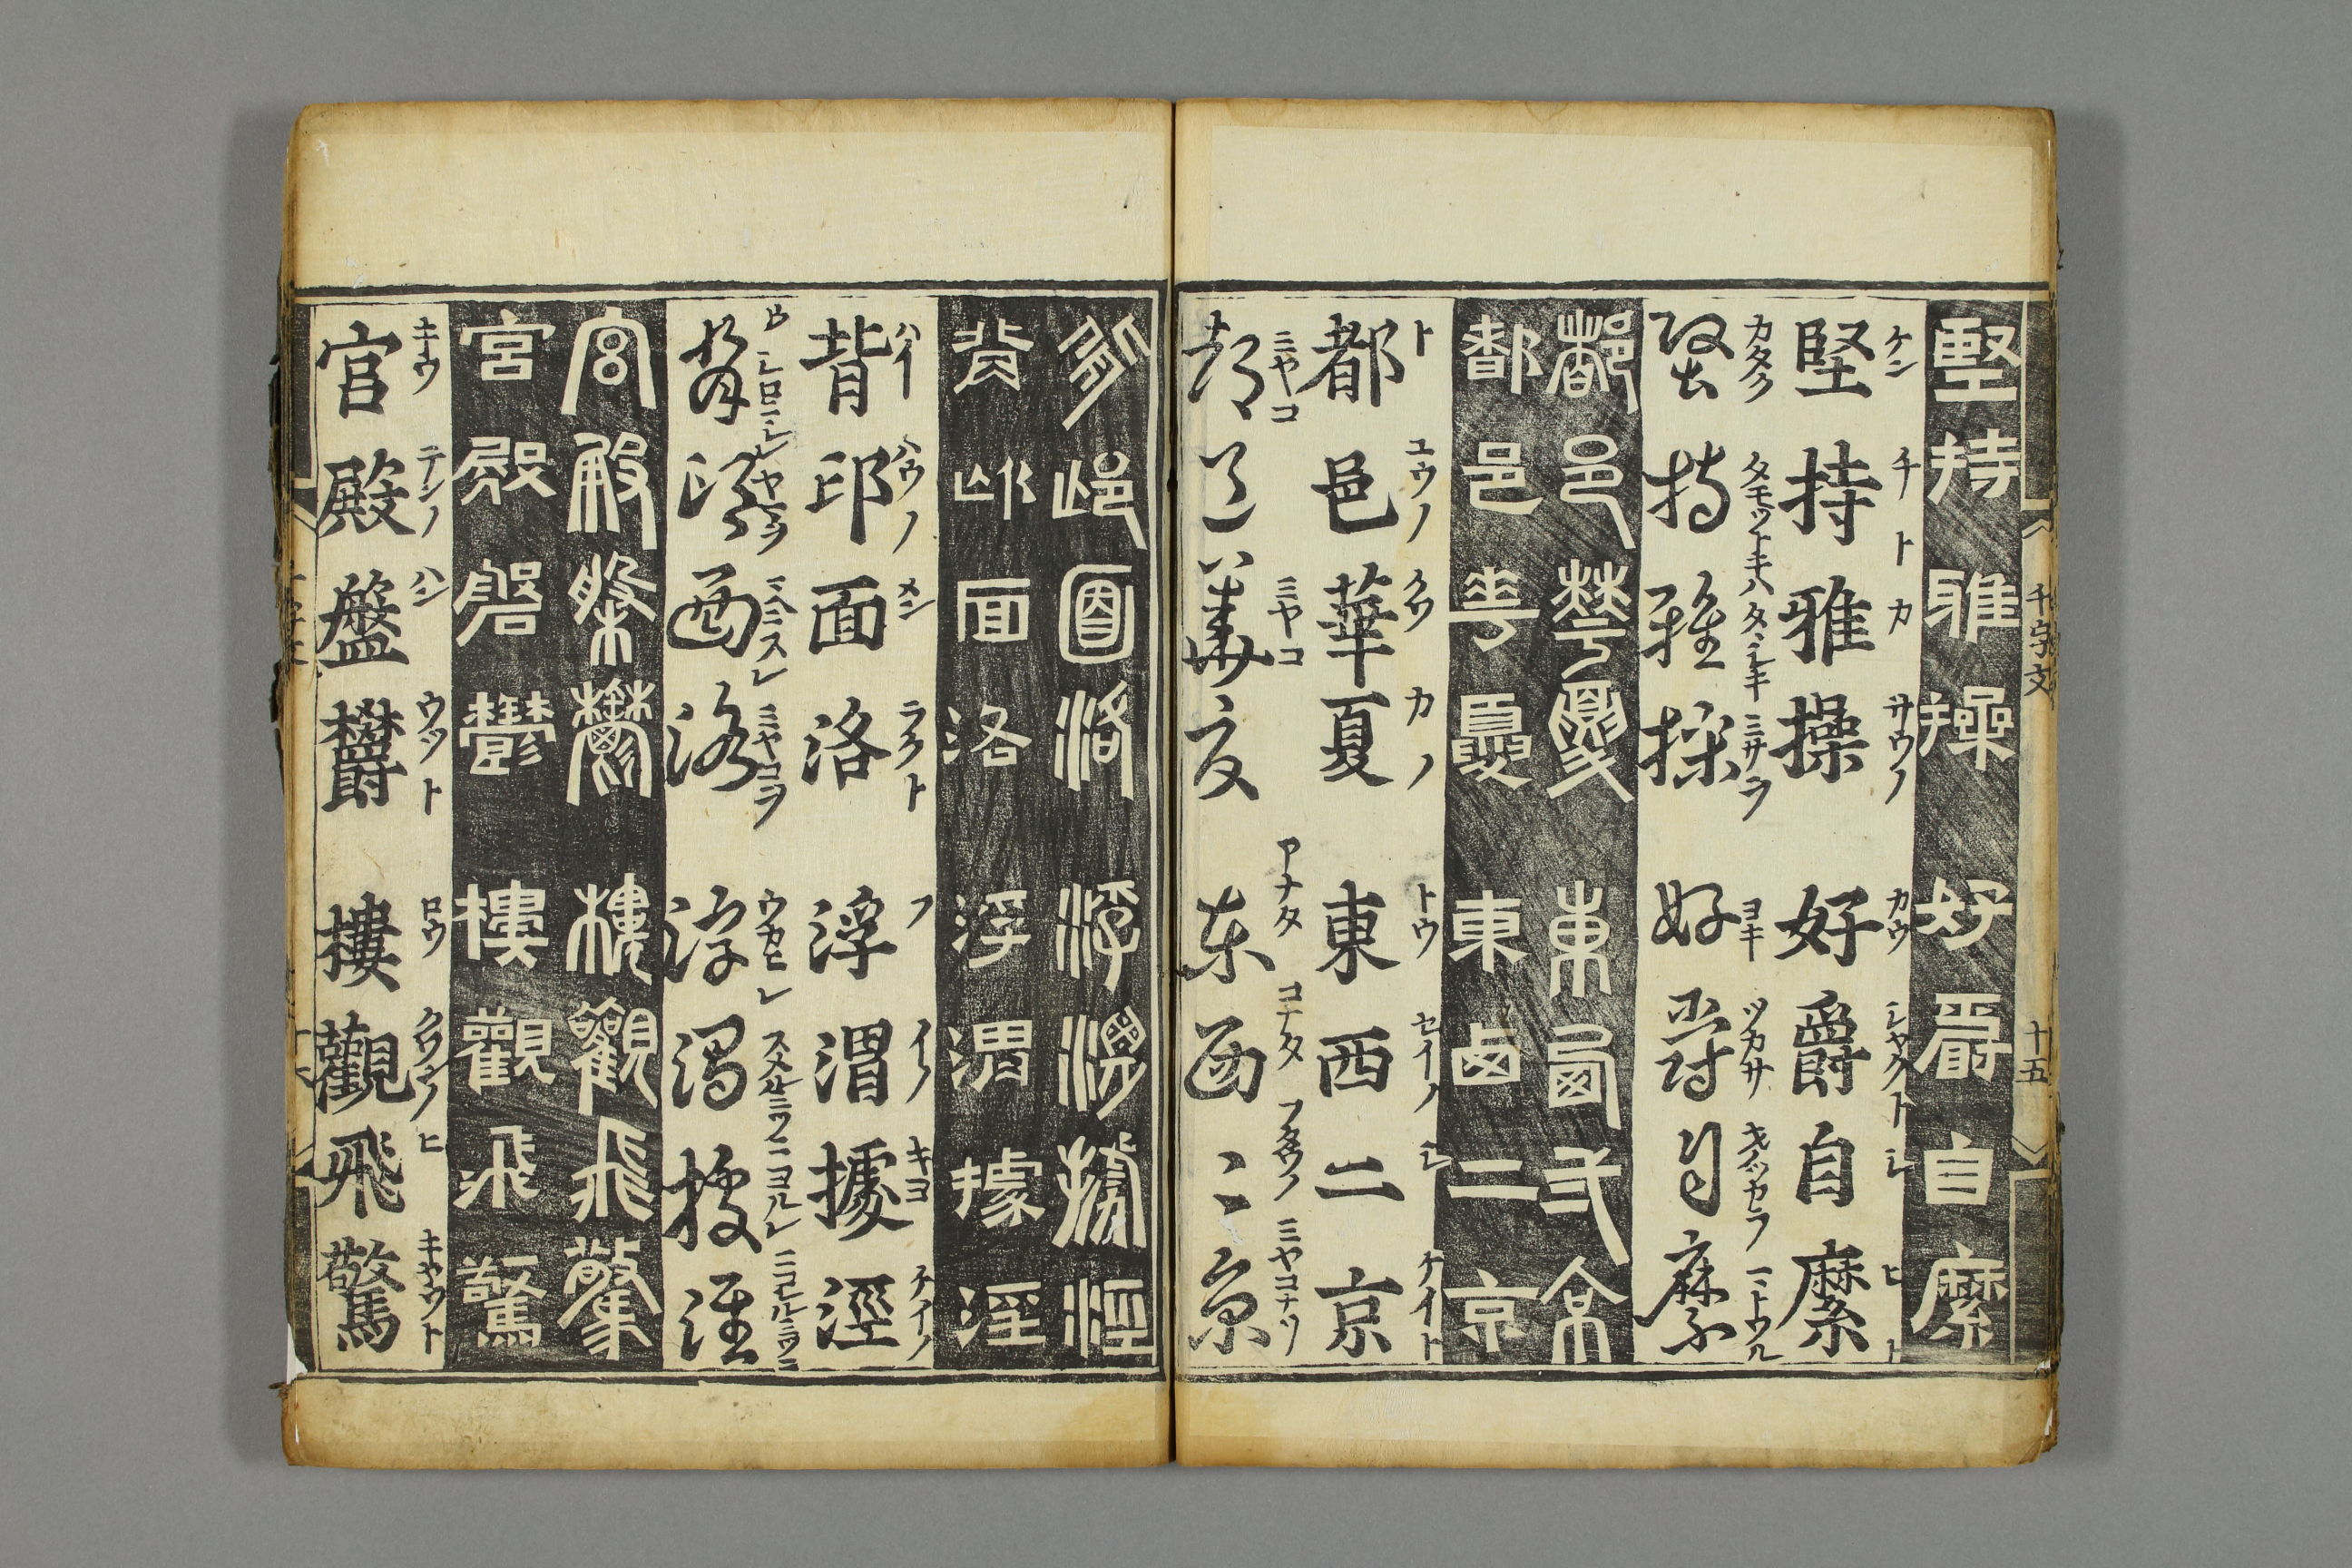 千字文
十五
堅持雅操好爵自縻
ケン チト カ サウノ カウ シヤクト シ ヒト
堅持雅操好爵自縻
カタク タモツトキハ タヽシキ ミサヲ ヨキ ツカサ
堅持雅操好爵自縻
都邑華夏東西二京
都邑華夏東西二京
ト ユウノ クワ カノ トウ セイノ シ ケイト
都邑華夏東西二京
ミヤコ ミヤコ アナタ コナタ フタツノ ミヤコナリ
都邑華夏東西二京
背邙面洛浮渭據涇
背邙面洛浮渭據涇
ハイ ハウノ メン ラクト フ イノ キヨ ケイノ
背邙面洛浮渭據涇
ウカヒ
背邙面洛浮渭據涇
宮殿盤鬱樓觀飛驚
宮殿盤鬱樓觀飛驚
キウ テンノ ハン ウツト ロウ クワンノ ヒ キヤウト
宮殿盤欝樓觀飛驚